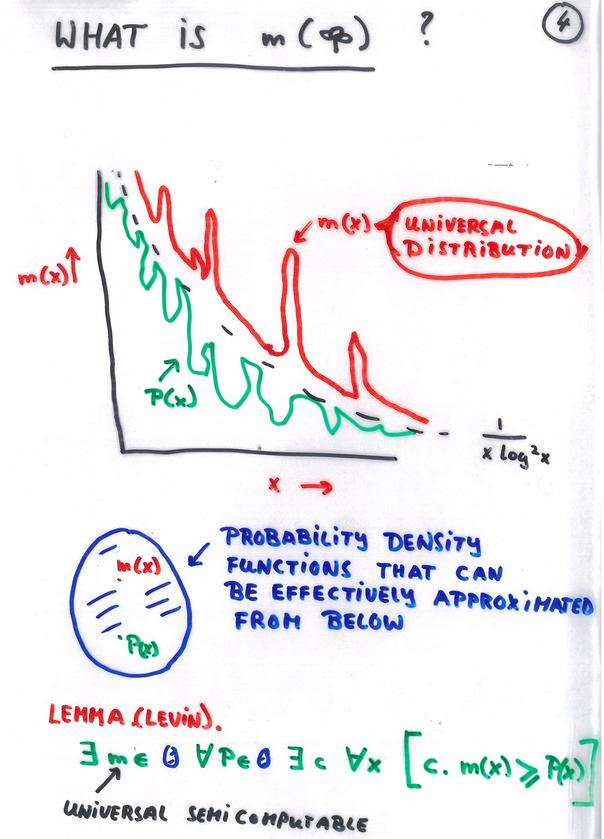 WHAT IS m(x) ?
4
m(x)
UNIVERSAL
DISTRIBUTION
m(x)
P(x)
1
x log²x
x →
PROBABILITY DENSITY
FUNCTIONS THAT CAN
BE EFFECTIVELY APPROXIMATED
FROM BELOW
m(x)
P(x)
LEMMA (LEVIN).
∃ m ∈ ∀ P ∈ ∃ c ∀x [c. m(x) ⩾ P(x)]
UNIVERSAL SEMICOMPUTABLE